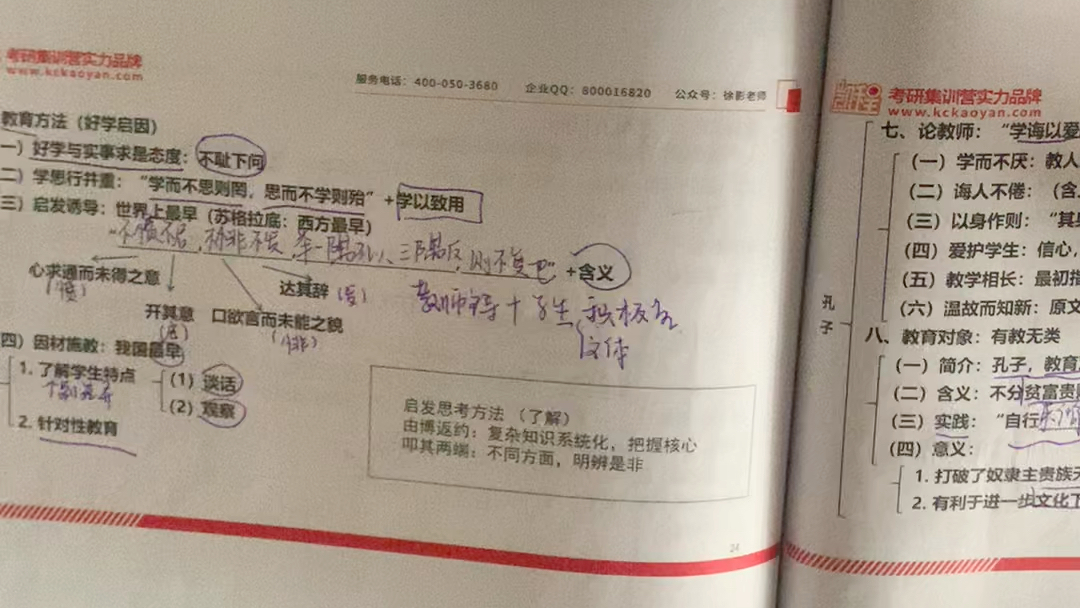 考研集训营实力品牌
www.kckaoyan.com
服务电话：400-050-3680 企业QQ：800016820 公众号：徐影老师
教育方法（好学启因）
一）好学与实事求是态度：不耻下问
二）学思行并重：“学而不思则罔，思而不学则殆”+学以致用
三）启发诱导：世界上最早（苏格拉底：西方最早）
“不愤不启，不悱不发，举一隅不以三隅反，则不复也”+含义
心求通而未得之意
（愤）
达其辞（发）
教师 + 学生 积极
开其意
（启）
口欲言而未能之貌
（悱）
四）因材施教：我国最早
1. 了解学生特点
（1）谈话
（2）观察
2. 针对性教育
启发思考方法（了解）
由博返约：复杂知识系统化，把握核心
叩其两端：不同方面，明辨是非
34
凯程 考研集训营实力品牌
www.kckaoyan.com
孔子
七、论教师：“学诲以爱
（一）学而不厌：教人
（二）诲人不倦：（含
（三）以身作则：“其
（四）爱护学生：信心，
（五）教学相长：最初指
（六）温故而知新：原文
八、教育对象：有教无类
（一）简介：孔子，教育
（二）含义：不分贫富贵
（三）实践：“自行
（四）意义：
1. 打破了奴隶主贵族
2. 有利于进一步文化下